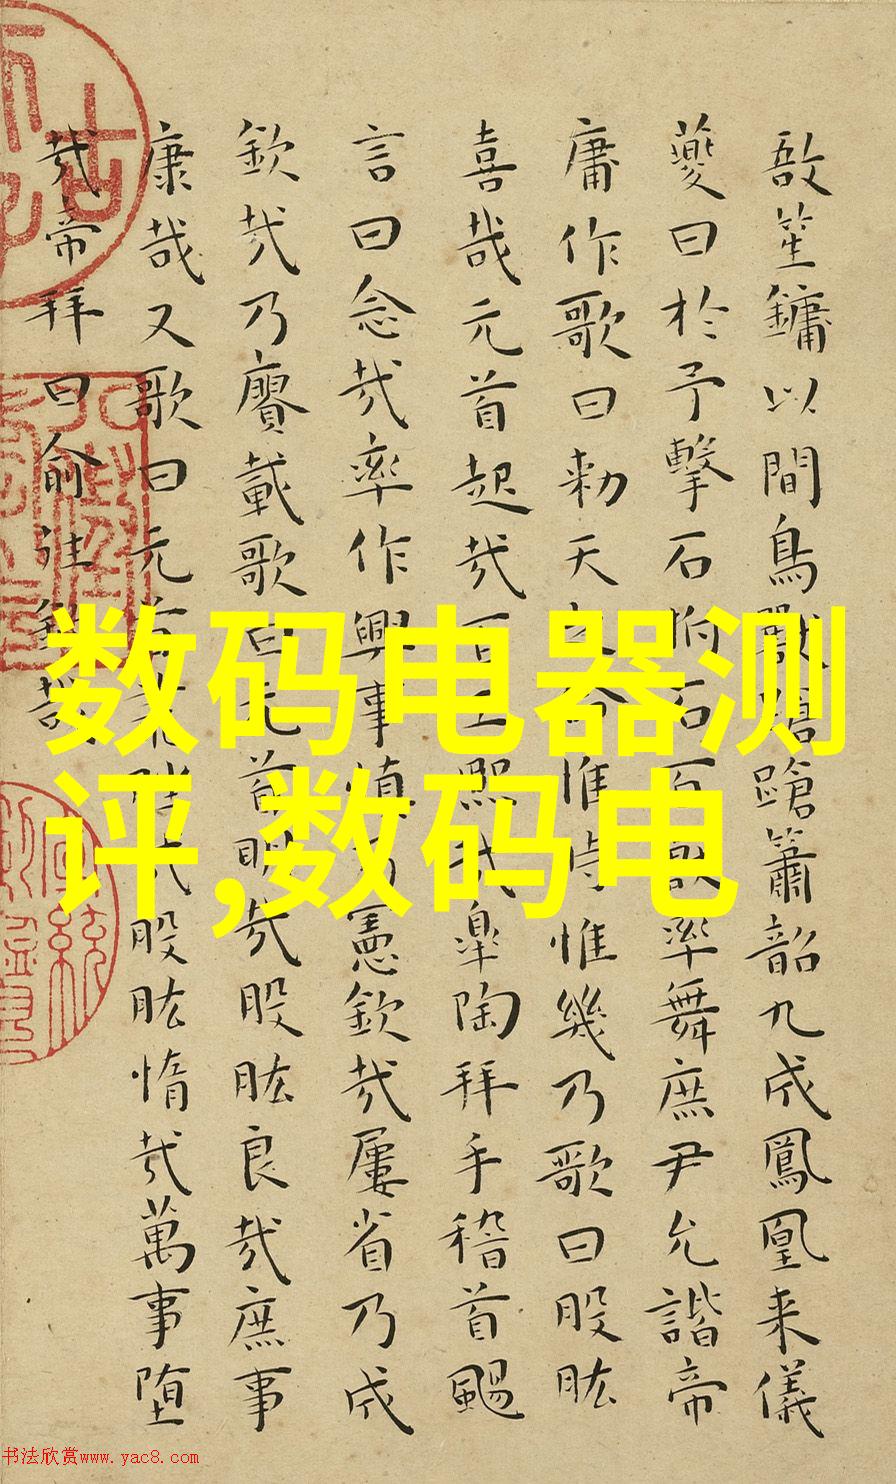 敔笙鏞以間鳥獸蹌蹌簫韶九成鳳凰来儀
夔曰於予擊石拊石百獸率舞庶尹允諧帝
庸作歌曰勑天之命惟時惟幾乃歌曰股肱
喜哉元首起哉百工熙哉皐陶拜手稽首颺
言曰念哉率作興事慎乃憲欽哉屢省乃成
欽哉乃賡載歌曰元首明哉股肱良哉庶事
康哉又歌曰元首叢脞哉股肱惰哉萬事堕
哉帝拜曰俞往欽哉
数码电器测
评,数码电
书法欣赏www.yac8.com